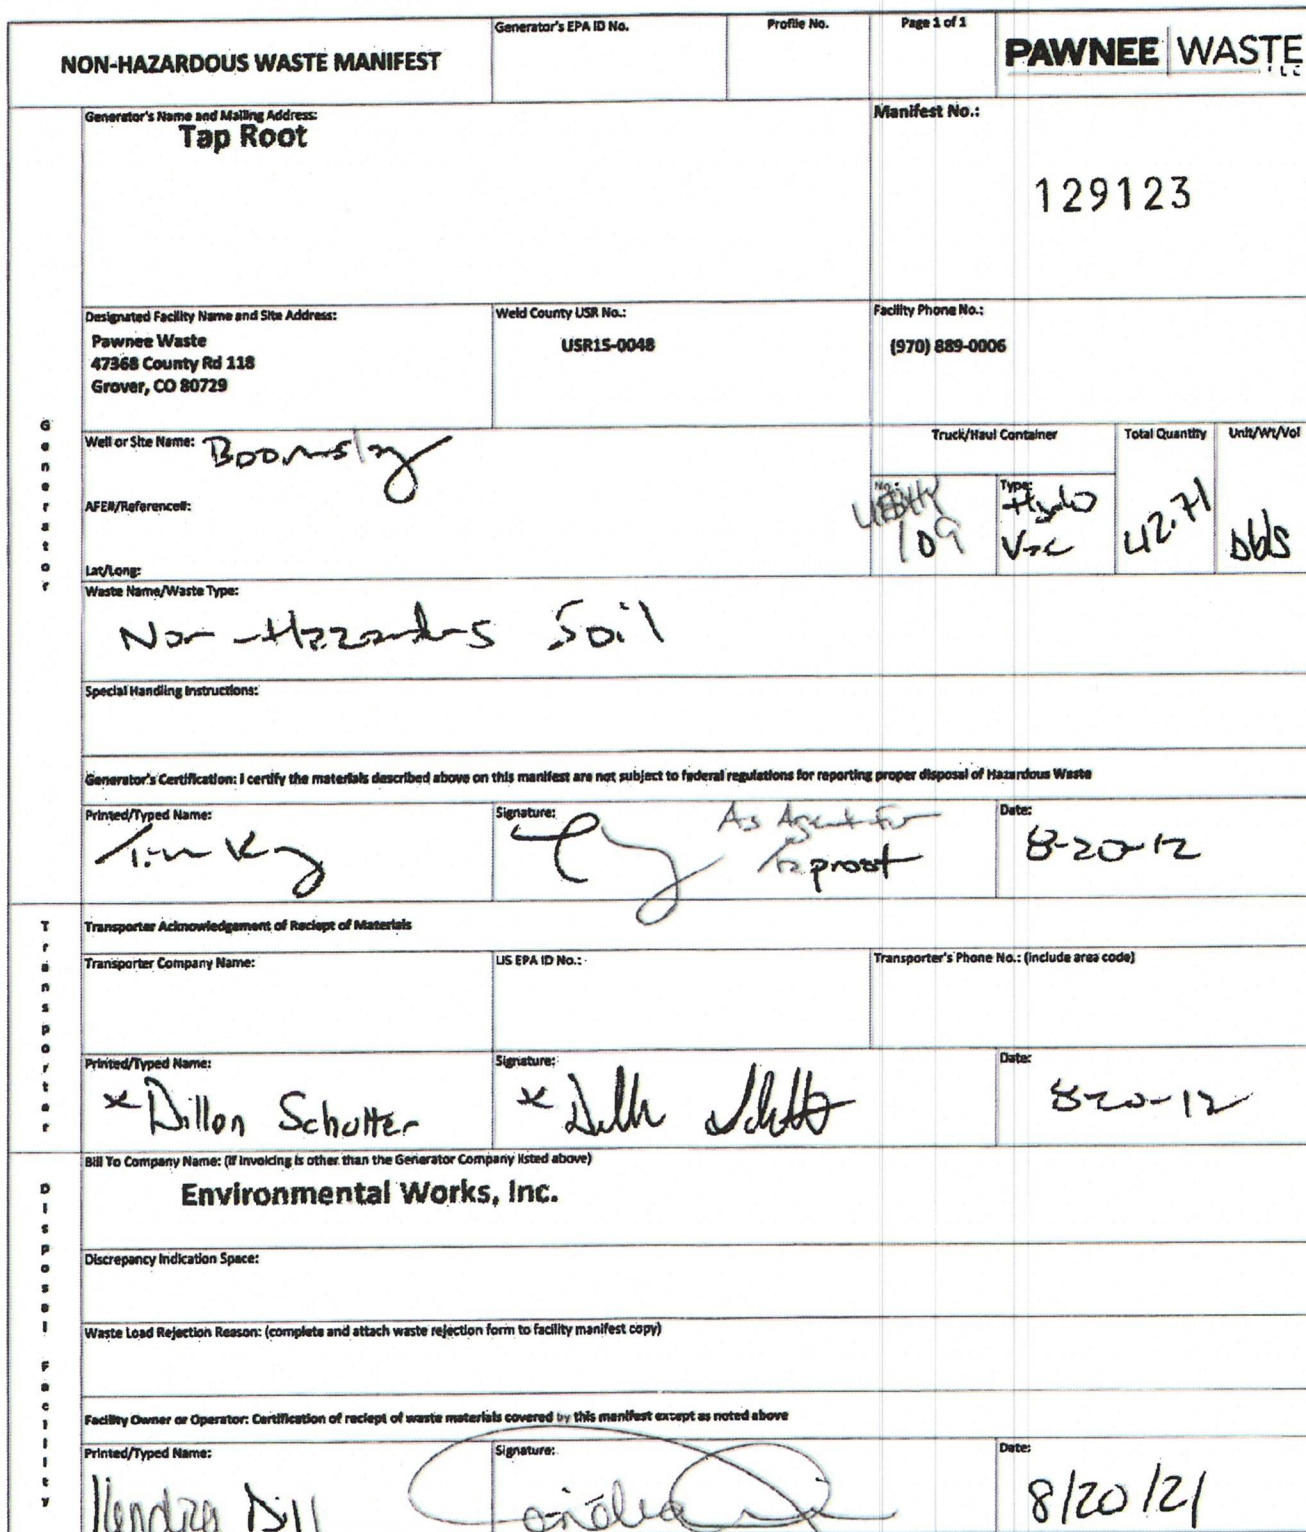 NON-HAZARDOUS WASTE MANIFEST
Generator's EPA ID No.
Profile No.
Page 1 of 1
PAWNEE WASTE
LLC
Generator's Name and Mailing Address:
Tap Root
Manifest No.:
129123
Designated Facility Name and Site Address:
Pawnee Waste
47368 County Rd 118
Grover, CO 80729
Weld County USR No.:
USR15-0048
Facility Phone No.:
(970) 889-0006
Generator
Well or Site Name:
AFE#/Reference#:
Lat/Long:
Truck/Haul Container
No.:
109
Type:
Hydro
Vac
Total Quantity
42.71
Unit/Wt/Vol
bbls
Waste Name/Waste Type:
Non-Hazzardous Soil
Special Handling Instructions:
Generator's Certification: I certify the materials described above on this manifest are not subject to federal regulations for reporting proper disposal of Hazardous Waste
Printed/Typed Name:
Signature:
As Agent for
Taproot
Date:
8-20-12
Transporter
Transporter Acknowledgement of Reciept of Materials
Transporter Company Name:
US EPA ID No.:
Transporter's Phone No.: (include area code)
Printed/Typed Name:
*Dillon Schutter
Signature:
Date:
8-20-12
Disposal Facility
Bill To Company Name: (If invoicing is other than the Generator Company listed above)
Environmental Works, Inc.
Discrepancy Indication Space:
Waste Load Rejection Reason: (complete and attach waste rejection form to facility manifest copy)
Facility Owner or Operator: Certification of reciept of waste materials covered by this manifest except as noted above
Printed/Typed Name:
Dill
Signature:
Date:
8/20/21